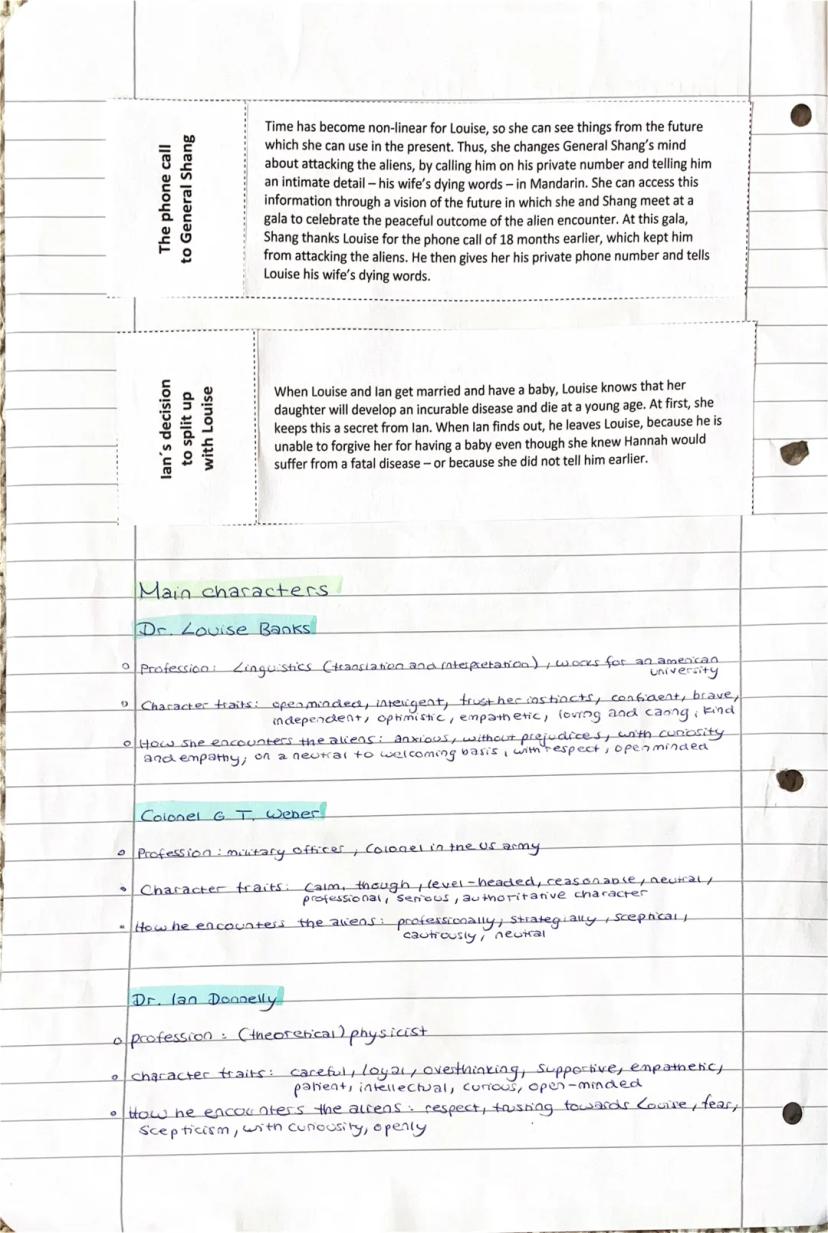 The phone call
to General Shang
Time has become non-linear for Louise, so she can see things from the future
which she can use in the present. Thus, she changes General Shang's mind
about attacking the aliens, by calling him on his private number and telling him
an intimate detail – his wife's dying words – in Mandarin. She can access this
information through a vision of the future in which she and Shang meet at a
gala to celebrate the peaceful outcome of the alien encounter. At this gala,
Shang thanks Louise for the phone call of 18 months earlier, which kept him
from attacking the aliens. He then gives her his private phone number and tells
Louise his wife's dying words.
Ian´s decision
to split up
with Louise
When Louise and Ian get married and have a baby, Louise knows that her
daughter will develop an incurable disease and die at a young age. At first, she
keeps this a secret from Ian. When Ian finds out, he leaves Louise, because he is
unable to forgive her for having a baby even though she knew Hannah would
suffer from a fatal disease – or because she did not tell him earlier.
Main characters
Dr. Louise Banks
Profession: Linguistics (translation and interpretation), works for an american
university
Character traits: openminded, inteligent, trust her instincts, confident, brave,
independent, optimistic, empathetic, loving and caring, kind
How she encounters the aliens: anxious, without prejudices, with curiosity
and empathy, on a neutral to welcoming basis, with respect, openminded
Colonel G T. Weber
Profession: military officer, Colonel in the US army
Character traits: calm, though, level-headed, reasonable, neutral,
professional, serious, authoritative character
How he encounters the aliens: professionally, strategially, sceptical,
cautiously, neutral
Dr. Ian Donnelly
profession: (theoretical) physicist
character traits: careful, loyal, overthinking, supportive, empathetic,
patient, intellectual, curious, open-minded
How he encounters the aliens: respect, trusting towards Louise, fear,
scepticism, with curiousity, openly